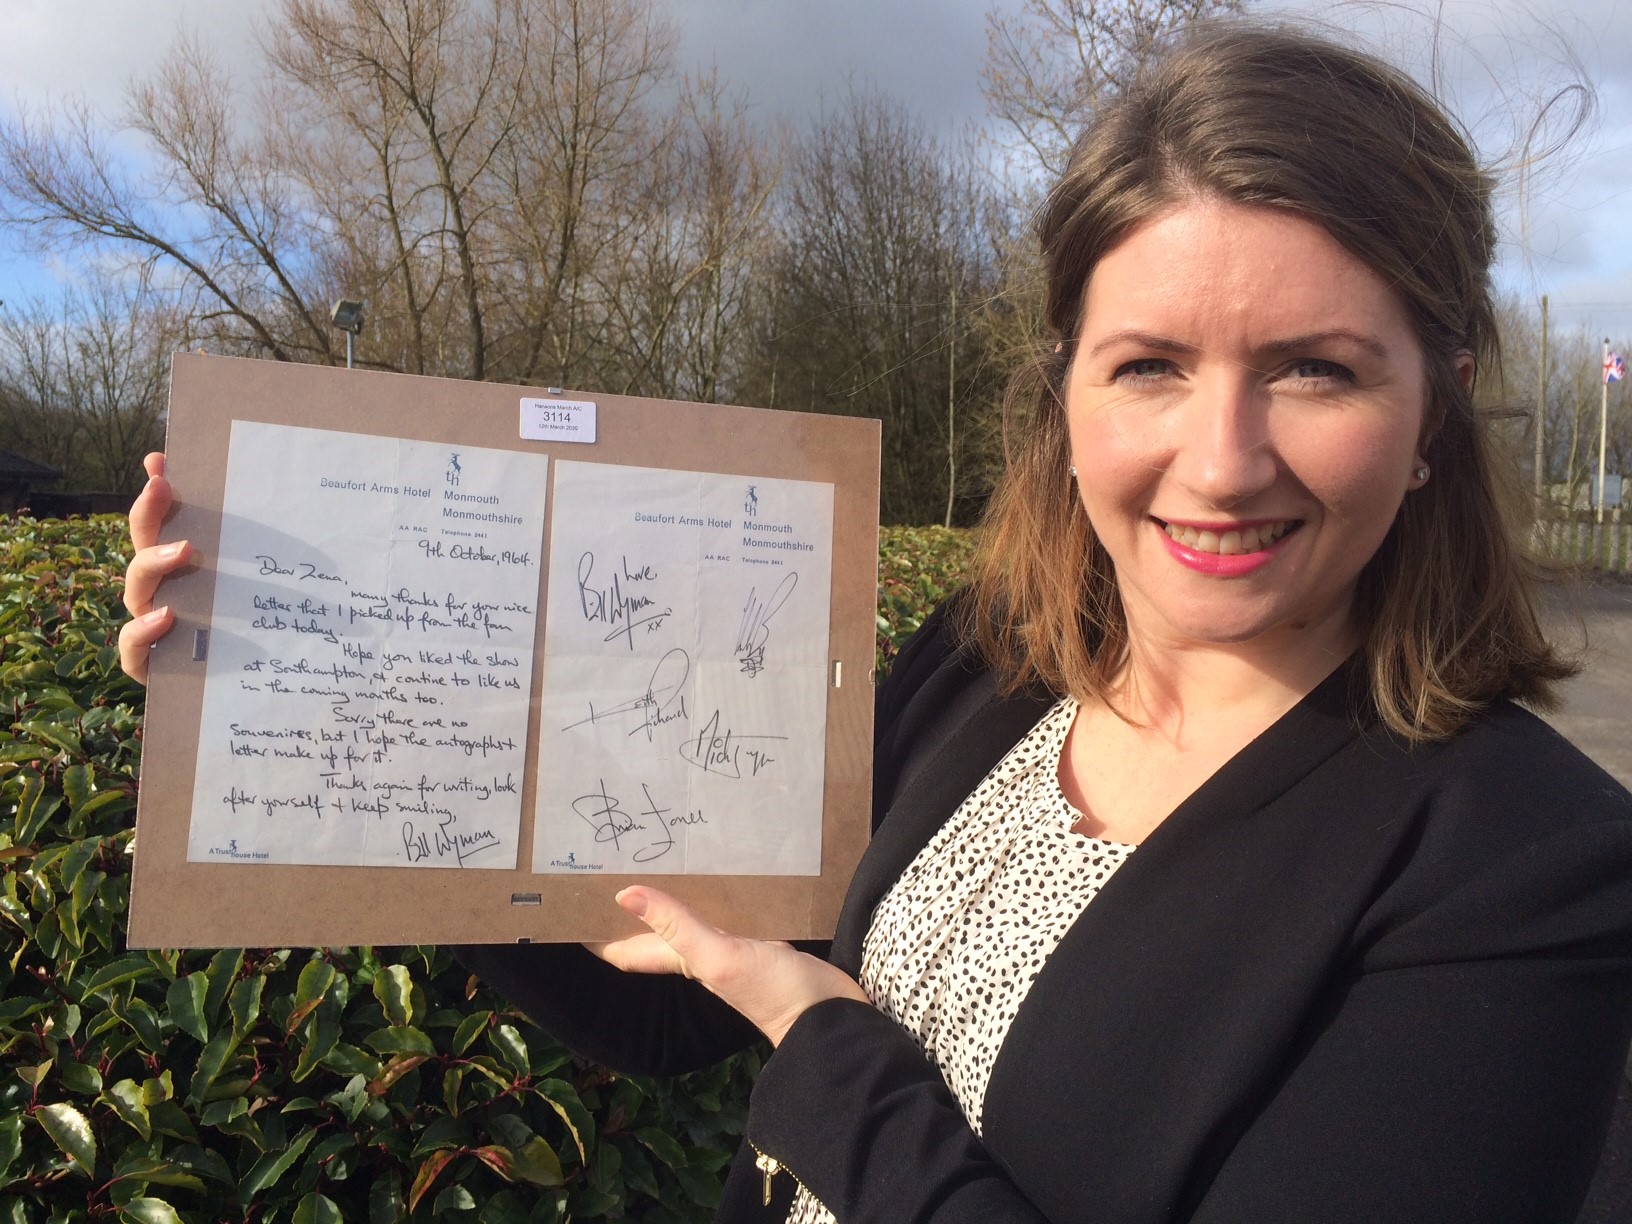 Hansons March A/C
3114
12th March 2020
th
Beaufort Arms Hotel Monmouth
Monmouthshire
AA RAC Telephone 2441
9th October, 1964.
Dear Zena,
many thanks for your nice
letter that I picked up from the fan
club today.
Hope you liked the show
at Southampton, & contine to like us
in the coming months too.
Sorry there are no
Souvenires, but I hope the autographs +
letter make up for it.
Thanks again for writing, look
after yourself + keep smiling,
Bill Wyman
A Trust house Hotel
th
Beaufort Arms Hotel Monmouth
Monmouthshire
AA RAC Telephone 2441
Love,
Bill Wyman
xx
Keith
Richard
Mick Jagger
Brian Jones
A Trust house Hotel